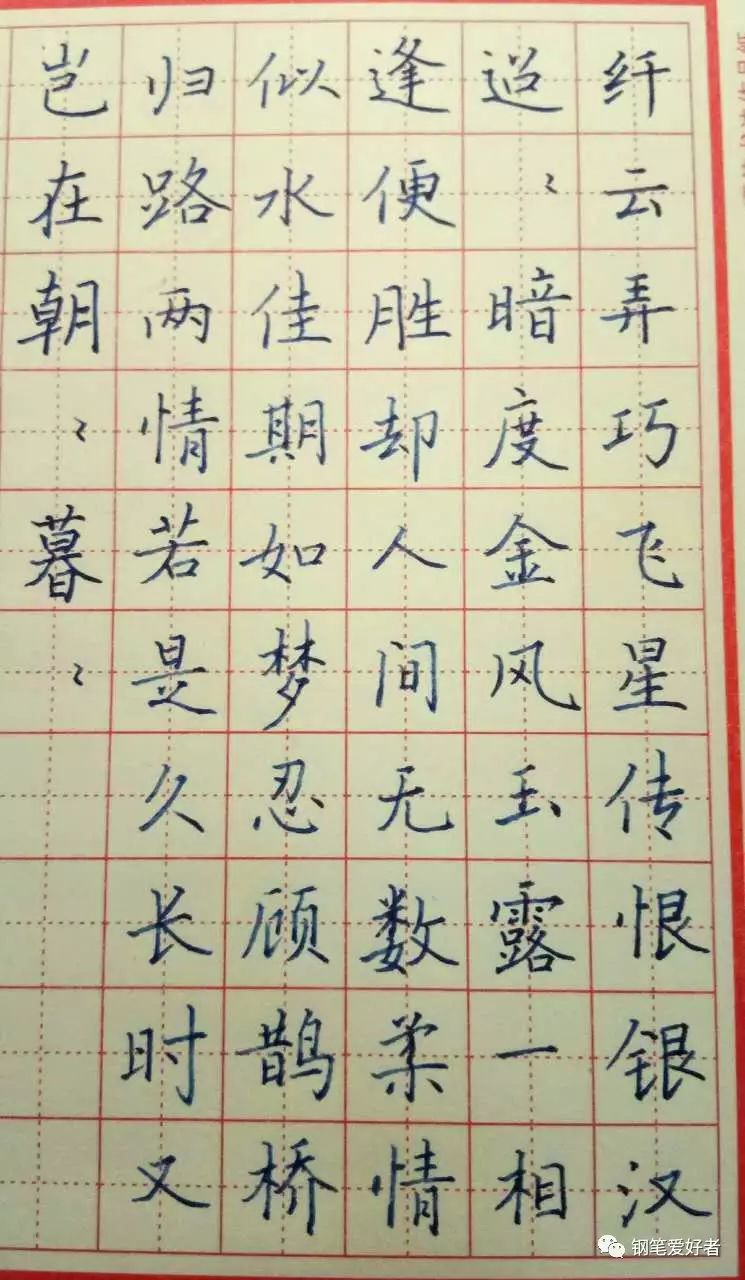 纤云弄巧飞星传恨银汉
迢〻暗度金风玉露一相
逢便胜却人间无数柔情
似水佳期如梦忍顾鹊桥
归路两情若是久长时又
岂在朝〻暮〻
钢笔爱好者